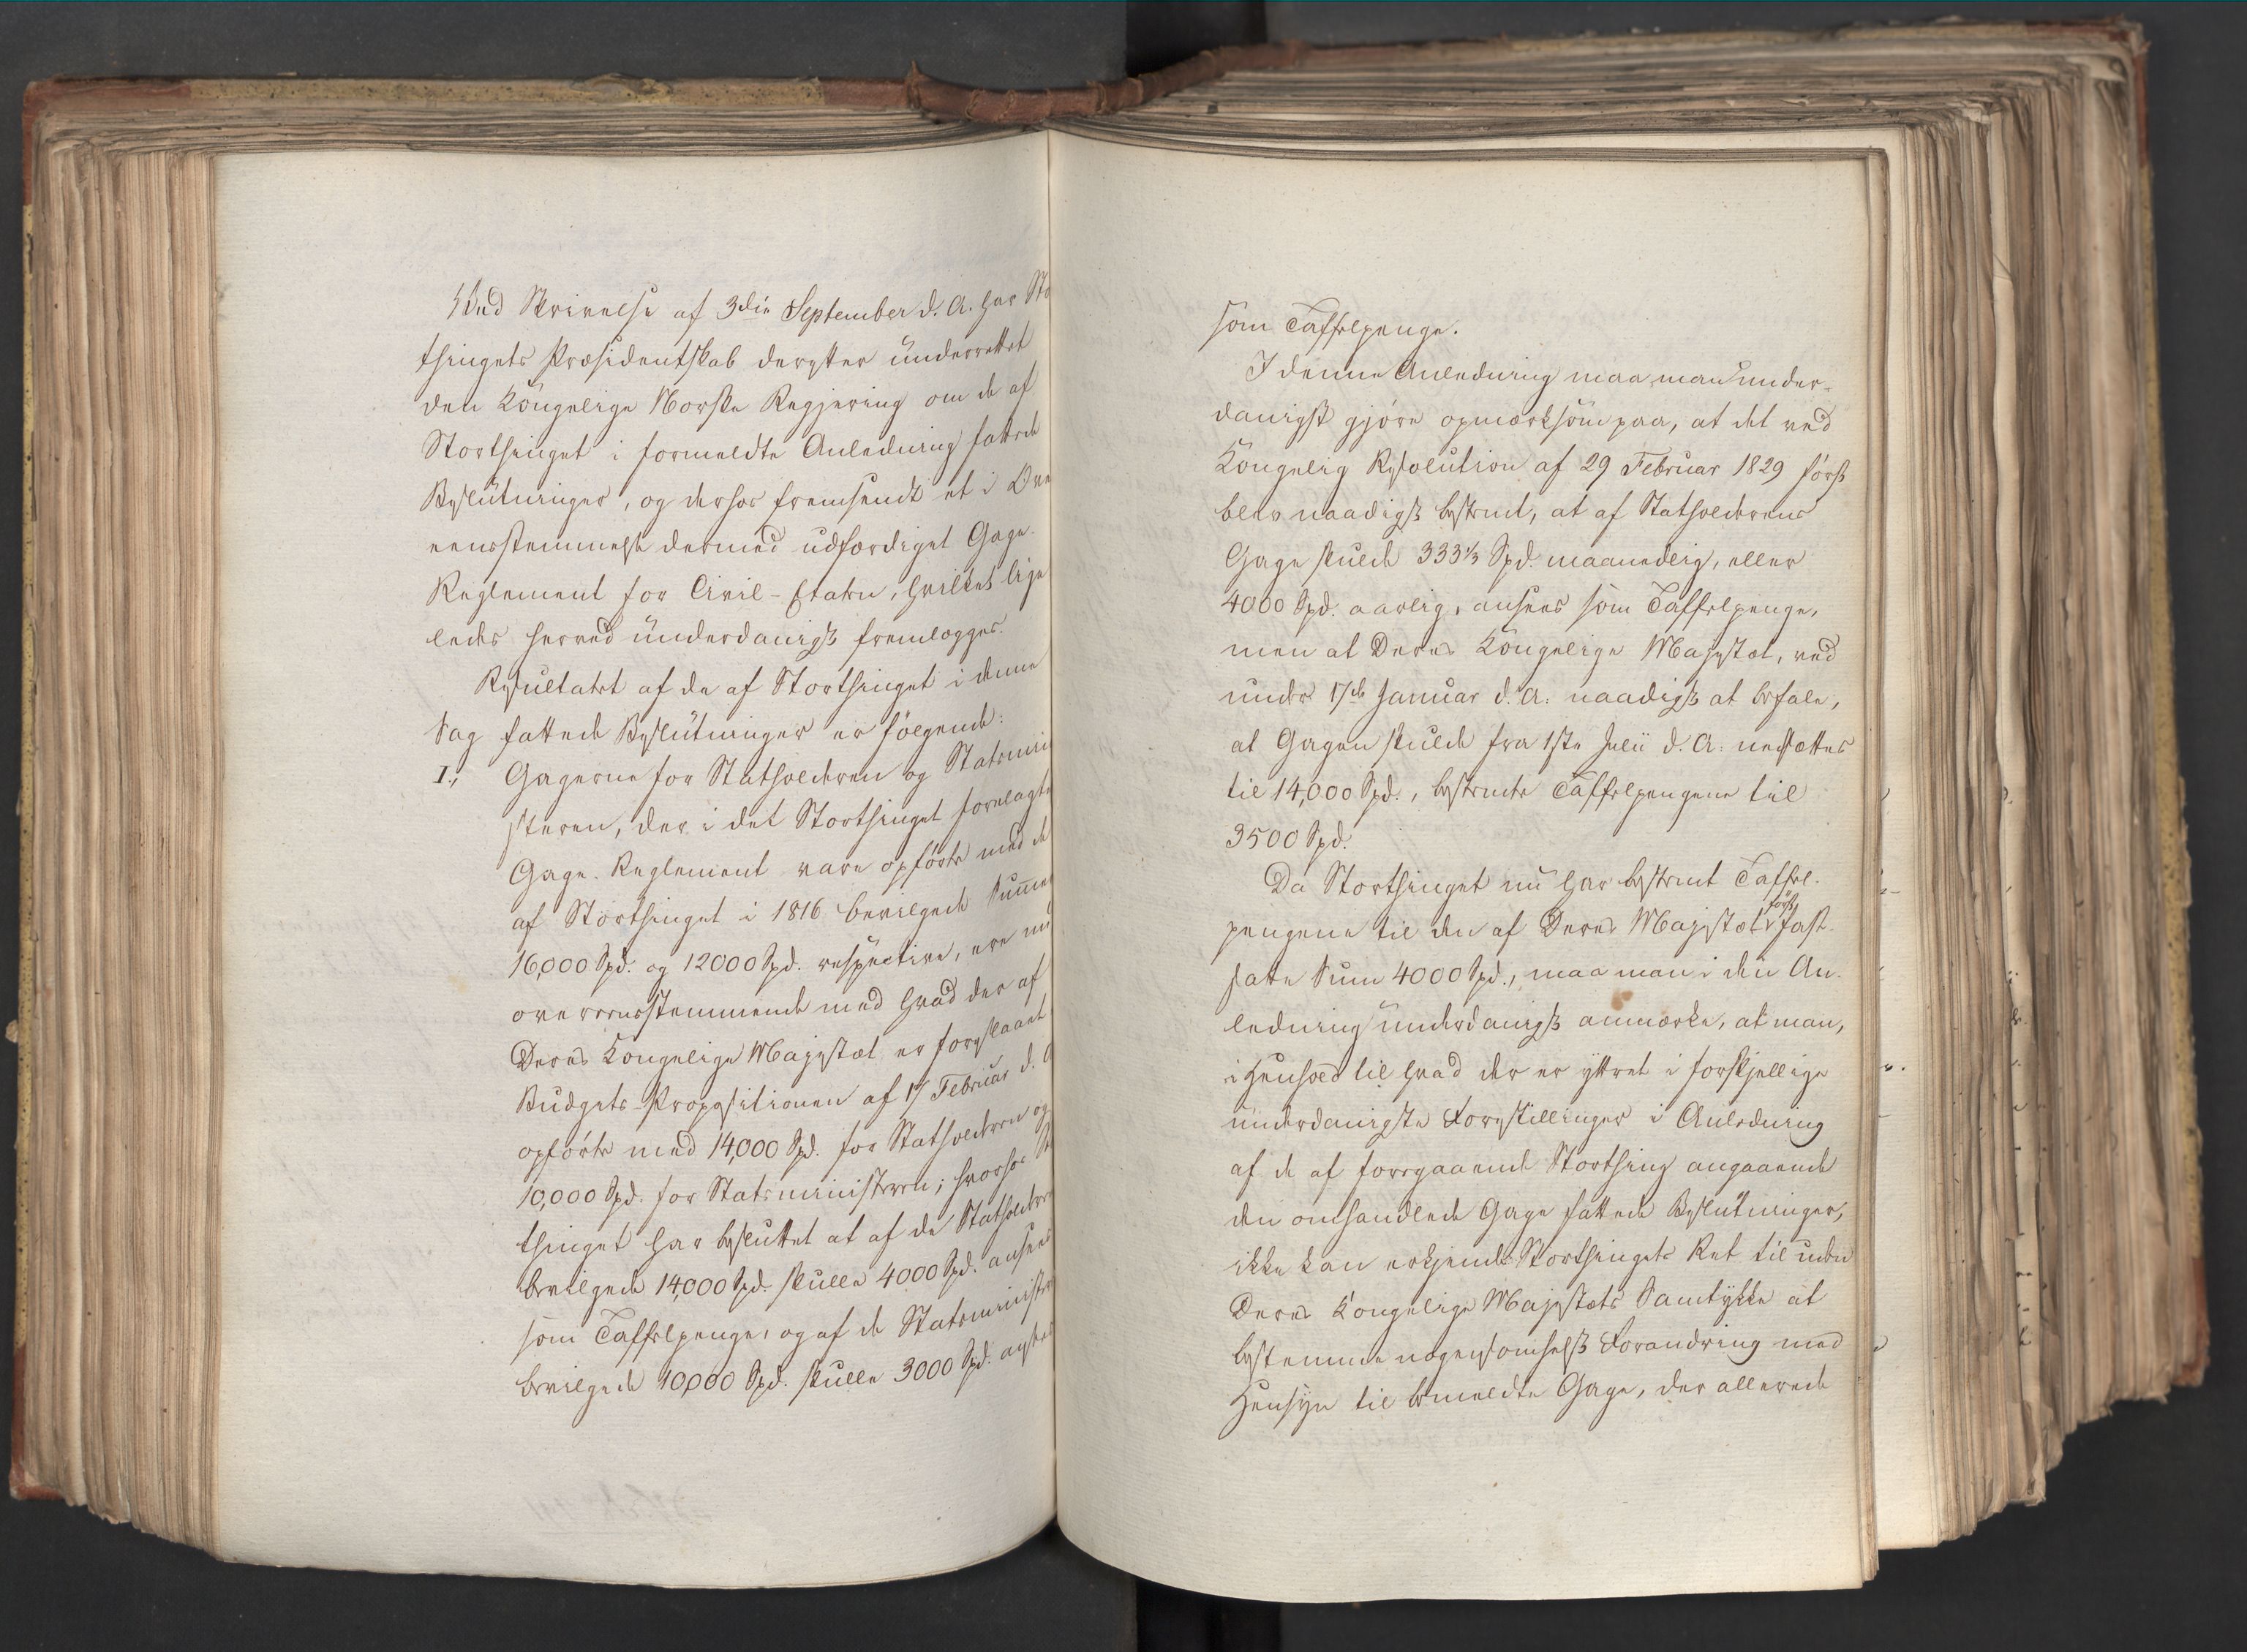 Ved Skrivelse af 3die September d. A. har Sto
thingets Præsidentskab derefter underrettet
den Kongelige Norske Regjering om de af
Storthinget i formeldte Anledning fattede
Beslutninger, og derhos fremsendt et i Ove
eensstemmelse dermed udfærdiget Gage-
Reglement for Civil-Etaten, hvilket lige
ledes herved underdanigst fremlægges.
Resultatet af de af Storthinget i denne
Sag fattede Beslutninger er følgende:
I., Gagerne for Statholderen og Statsmini
steren, der i det Storthinget forelagte
Gage-Reglement vare opførte med de
af Storthinget i 1816 bevilgede Summer
16,000 Spd. og 12000 Spd. respective, ere nu
overeensstemmende med hvad der af
Deres Kongelige Majestæt er foreslaaet
Budgets-Propositionen af 17 Februar d. A
opførte med 14,000 Spd. for Statholderen og
10,000 Spd. for Statsministeren; hvorhos St
thinget har besluttet at af de Statholderen
bevilgede 14,000 Spd. skulle 4000 Spd. ansees
som Taffelpenge, og af de Statsministe
bevilgede 10,000 Spd. skulle 3000 Spd.
som Taffelpenge.
I denne Anledning maa man under-
danigst gjøre opmærksom paa, at det ved
Kongelig Resolution af 29 Februar 1829 først
blev naadigst bestemt, at af Statholderens
Gage skulde 333⅓ Spd. maanedlig, eller
4000 Spd. aarlig, ansees som Taffelpenge,
men at Deres Kongelige Majestæt, ved
under 17de Januar d. A. naadigst at befale,
at Gagen skulde fra 1ste Julii d. A. nedsættes
til 14,000 Spd., bestemte Taffelpengene til
3500 Spd.
Da Storthinget nu har bestemt Taffel-
pengene til den af Deres Majestæt først fast-
satte Sum 4000 Spd., maa man i den An-
ledning underdanigst anmærke, at man,
i Henhold til hvad der er yttret i forskjellige
underdanigste Forestillinger i Anledning
af de af foregaaende Storthing angaaende
den omhandlede Gage fattede Beslutninger,
ikke kan erkjende Storthingets Ret til uden
Deres Kongelige Majestæts Samtykke at
bestemme nogensomhelst Forandring med
Hensyn til bemeldte Gage, der allerede